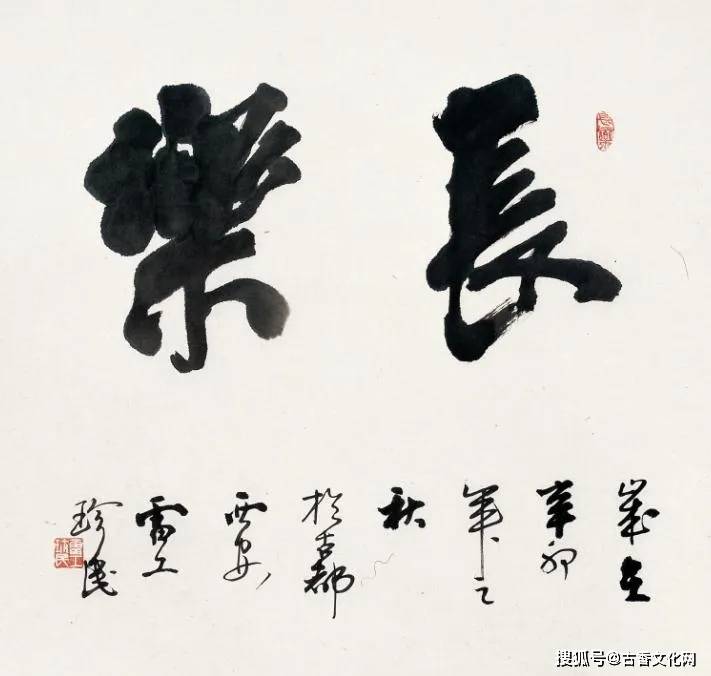 長樂
歲在
辛卯
年之
秋
於古都
西安
雷工
珍民
搜狐号@古香文化网